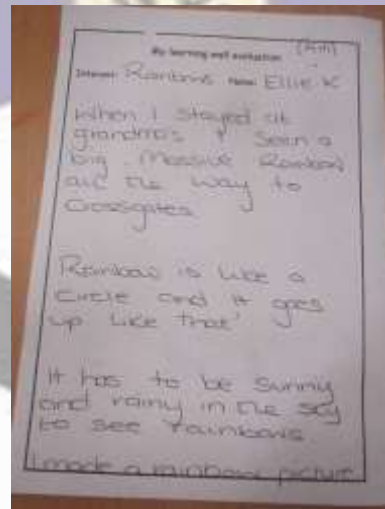 (4th)
My learning wall evaluation
Interest: Rainbows Name: Ellie K
When I stayed at
grandmas I seen a
big massive Rainbow
all the way to
Crossgates
Rainbow is like a
circle and it goes
up like that'
It has to be sunny
and rainy in the sky
to see rainbows.
I made a rainbow picture